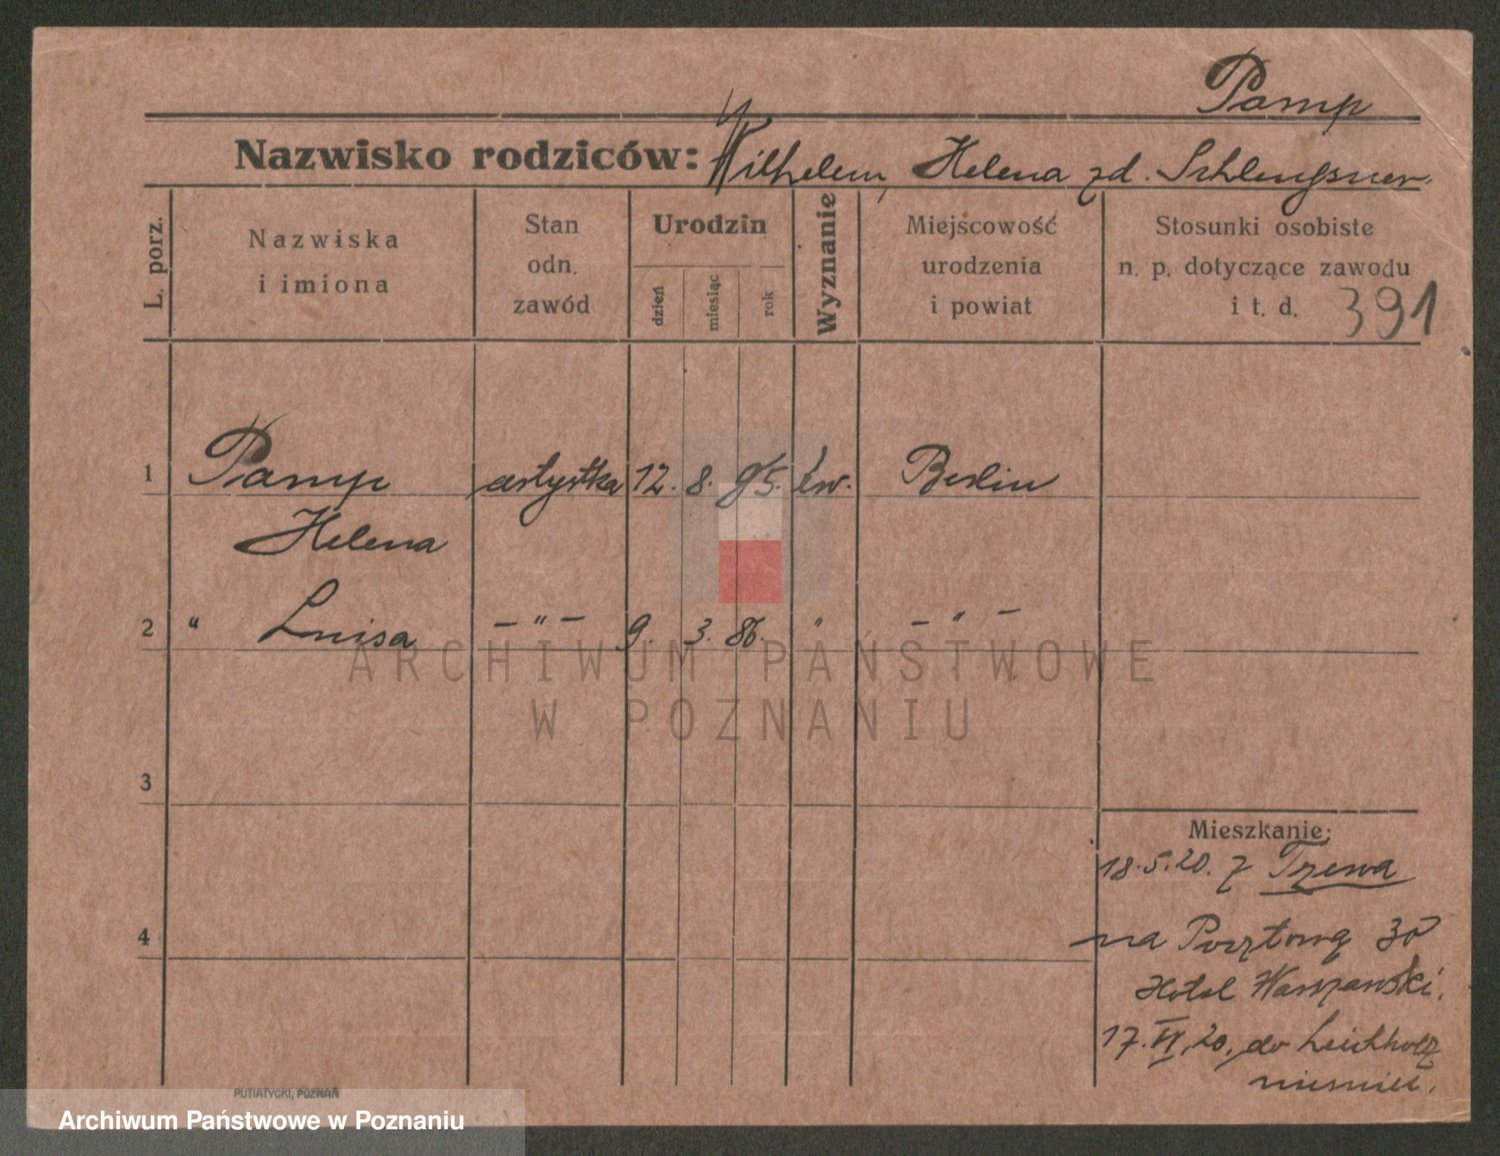 Pamp
Nazwisko rodziców: Wilhelem, Helena zd. Schlengsner
L. porz.
Nazwiska i imiona
Stan odn. zawód
Urodzin
dzień
miesiąc
rok
Wyznanie
Miejscowość urodzenia i powiat
Stosunki osobiste n. p. dotyczące zawodu i t. d. 391
1 Pamp artystka 12. 8. 95. ew. Berlin
Helena
2 " Luisa — " — 9. 3. 86. " — " —
ARCHIWUM PAŃSTWOWE
W POZNANIU
3
Mieszkanie:
18.5.20. z Tczewa
4
na Pocztową 30
Hotel Warszawski.
17.VI.20. do
PUTIATYCKI, POZNAŃ
Archiwum Państwowe w Poznaniu